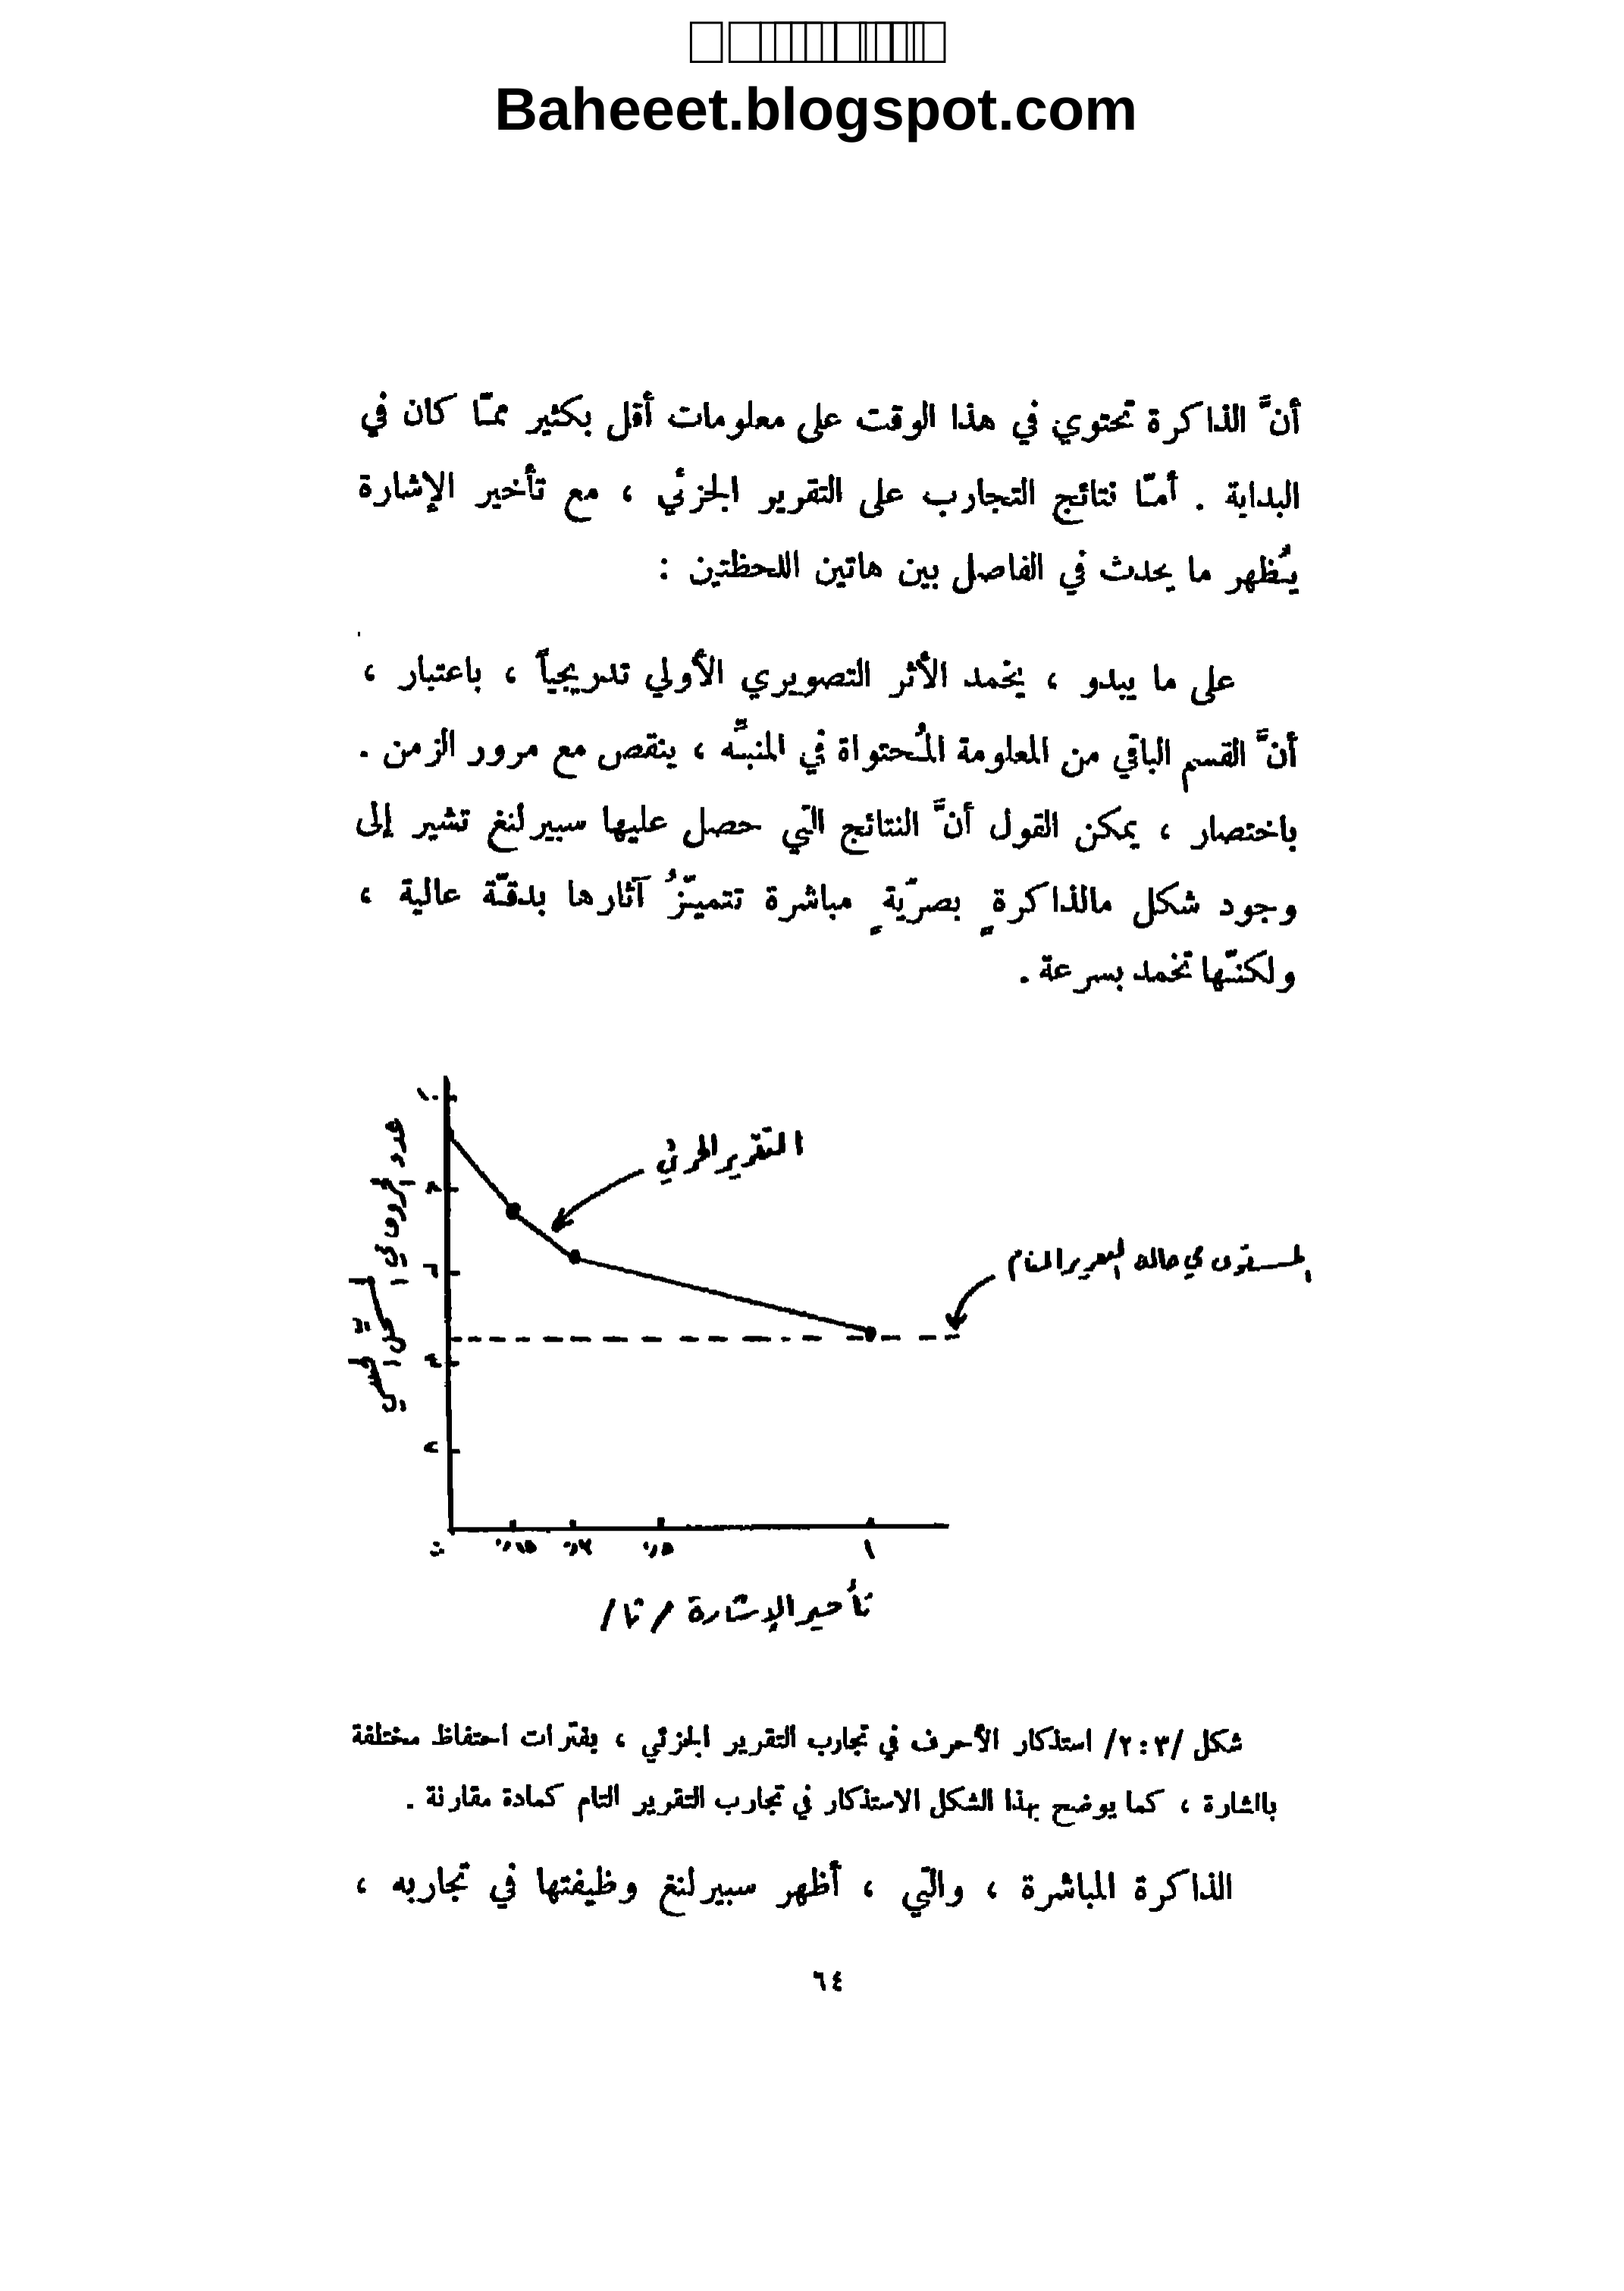 Baheeet.blogspot.com
أنَّ الذاكرة تحتوي في هذا الوقت على معلومات أقل بكثير ممّا كان في
البداية . أمّا نتائج التجارب على التقرير الجزئي ، مع تأخير الإشارة
يُظهر ما يحدث في الفاصل بين هاتين اللحظتين :
على ما يبدو ، يخمد الأثر التصويري الأولي تدريجياً ، باعتبار ،
أنَّ القسم الباقي من المعلومة المُحتواة في المنبّه ، ينقص مع مرور الزمن .
باختصار ، يمكن القول أنَّ النتائج التي حصل عليها سبيرلنغ تشير إلى
وجود شكل مالذاكرةٍ بصرّيةٍ مباشرة تتميّزُ آثارها بدقّة عالية ،
ولكنّها تخمد بسرعة .
١٠
٨
٦
٤
٢
عدد الحروف في
التقرير الجزئي
المستوى في حالة التقرير التام
١
تأخير الإشارة / ثا /
شكل /٢:٣/ استذكار الأحرف في تجارب التقرير الجزئي ، بفترات احتفاظ مختلفة
بااشارة ، كما يوضح بهذا الشكل الاستذكار في تجارب التقرير التام كمادة مقارنة .
الذاكرة المباشرة ، والتي ، أظهر سبيرلنغ وظيفتها في تجاربه ،
٦٤